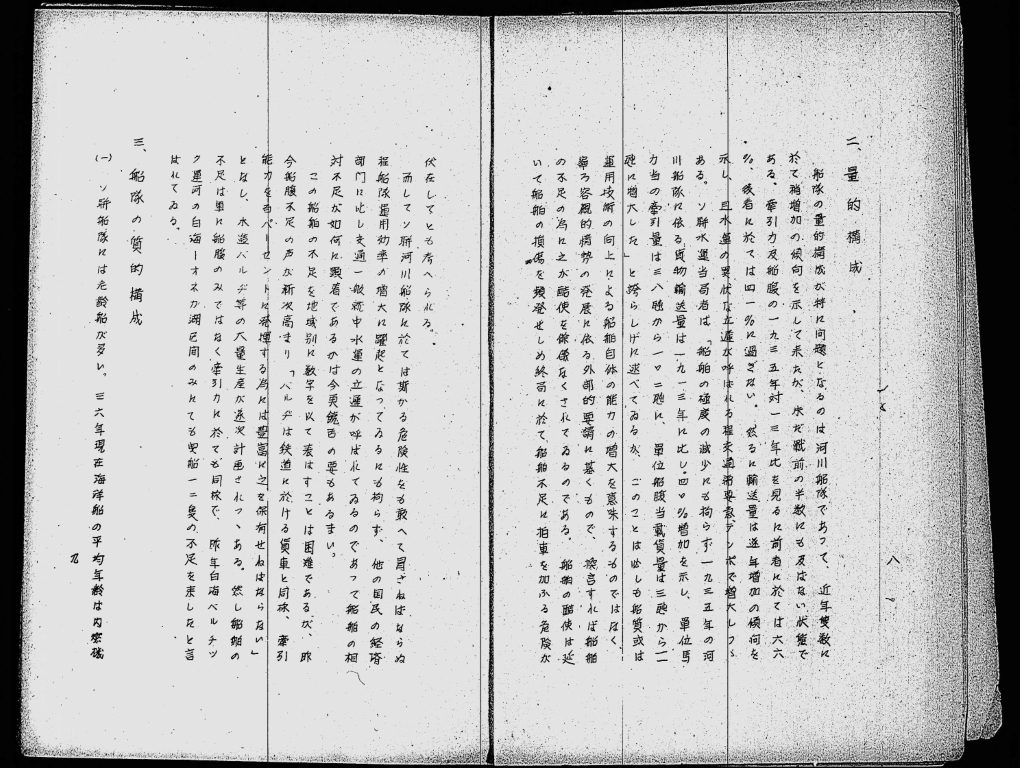 二、量的構成
船隊の量的構成が特に問題となるのは河川船隊であつて、近年隻数に
於て稍増加の傾向を示して来たが、未だ戦前の半数にも及ばない状態で
ある。牽引力及船腹の一九三五年対一三年比を見るに前者に於ては六六
%、後者に於ては四一%に過ぎない。然るに輸送量は逐年増加の傾向を
示し、
ある。ソ聯水運当局者は「船舶の極度の減少にも拘らず一九三五年の河
川船隊に依る貨物輸送量は一九一三年に比し四〇%増加を示し、単位馬
力当の牽引量は三八瓲から一〇二瓲に、単位船腹当載貨量は三瓲から一一
瓲に増大した」と誇らしげに述べてゐるが、このことは必しも船質或は
運用技術の向上による船舶自体の能力の増大を意味するものではなく
寧ろ客観的情勢の発展に依る外部的要請に基くもので、換言すれば船舶
の不足の為に之が酷使を餘儀なくされてゐるのである。船舶の酷使は延
いて船舶の損傷を頻発せしめ終局に於て船舶不足に拍車を加ふる危険が
八
伏在してとも考へられる。
而してソ聯河川船隊に於ては斯かる危険性をも敢へて冒さねばならぬ
程船隊運用効率の増大に躍起となつてゐるにも拘らず、他の国民の経済
部門に比し交通一般就中水運の立遅が呼ばれてゐるのであつて船舶の相
対不足が如何に顕著であるかは今更贅言の要もあるまい。
この船舶の不足を地域別に数字を以て表はすことは困難であるが、昨
今船腹不足の声が漸次高まり「バルヂは鉄道に於ける貨車と同様、牽引
能力を百パーセントに発揮する為には豊富に之を保有せねばならない」
となし、水運バルヂ等の大量生産が逐次計画されつゝある。然し船舶の
不足は単に船腹のみではなく牽引力に於ても同様で、昨年白海バルチッ
ク運河の白海ーオネガ湖区間のみにても曳船一二隻の不足を来したと言
はれてゐる。
三、船隊の質的構成
(一) ソ聯船隊には老齢船が多い。三六年現在海洋船の平均年齢は内
九